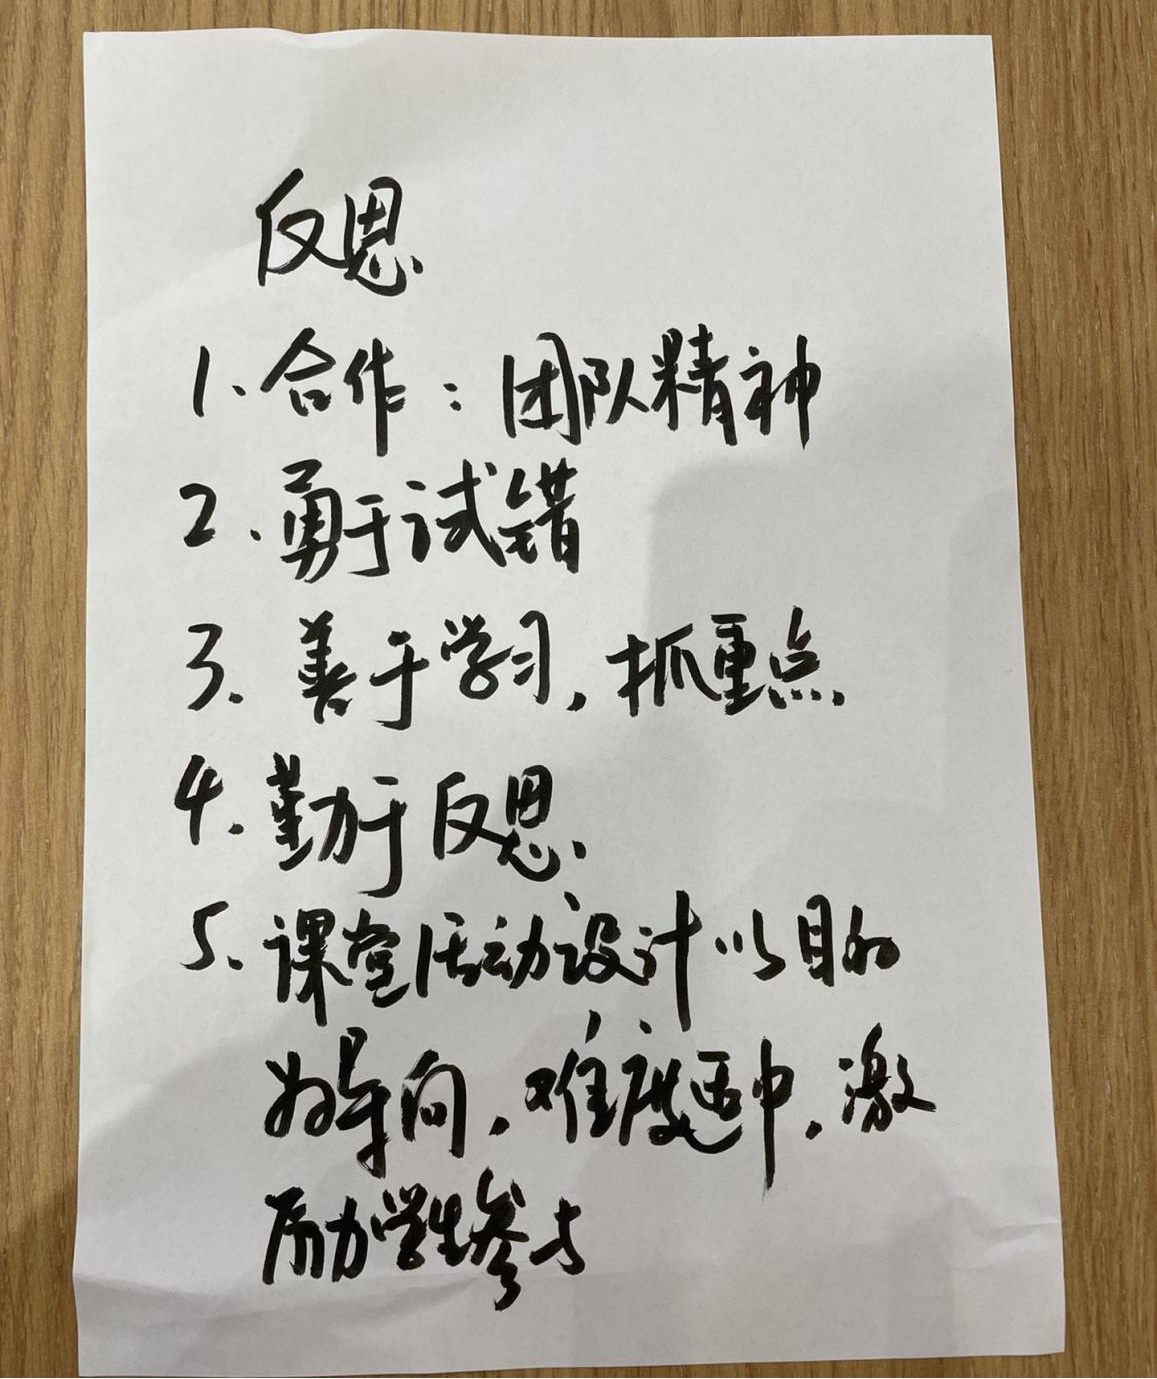 反思
1. 合作：团队精神
2. 勇于试错
3. 善于学习，抓重点.
4. 勤于反思.
5. 课堂活动设计以目的
为导向，难度适中，激
励学生参与